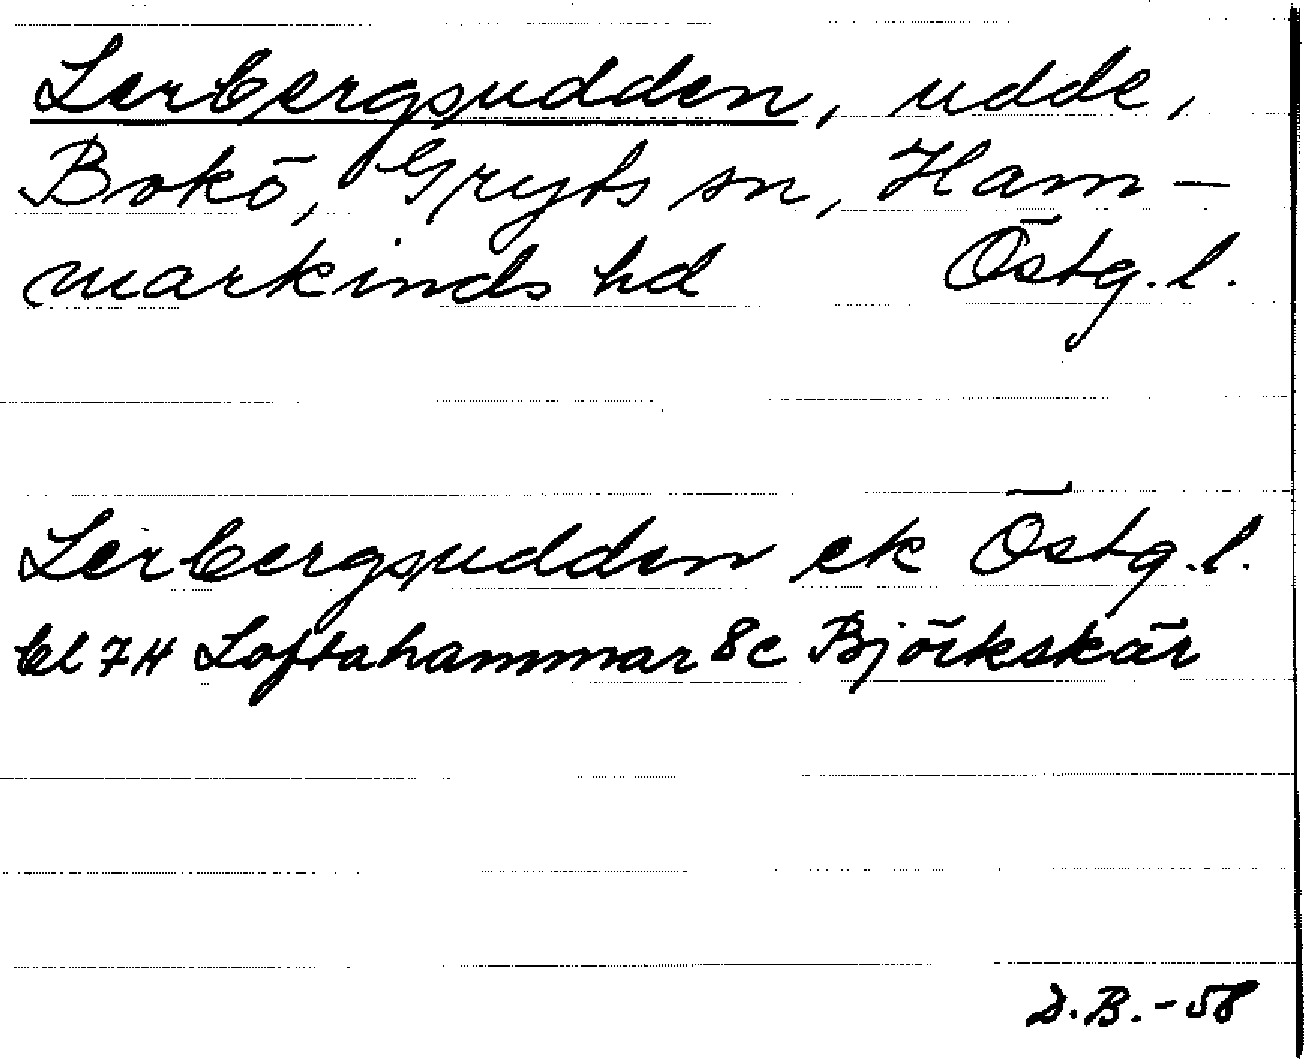 Lerbergsudden, udde,
Bokö, Gryts sn, Ham-
markinds hd Östg. l.
Lerbergsudden ek Östg. l.
bl 7H Loftahammar 8c Björkskär
D.B.-58